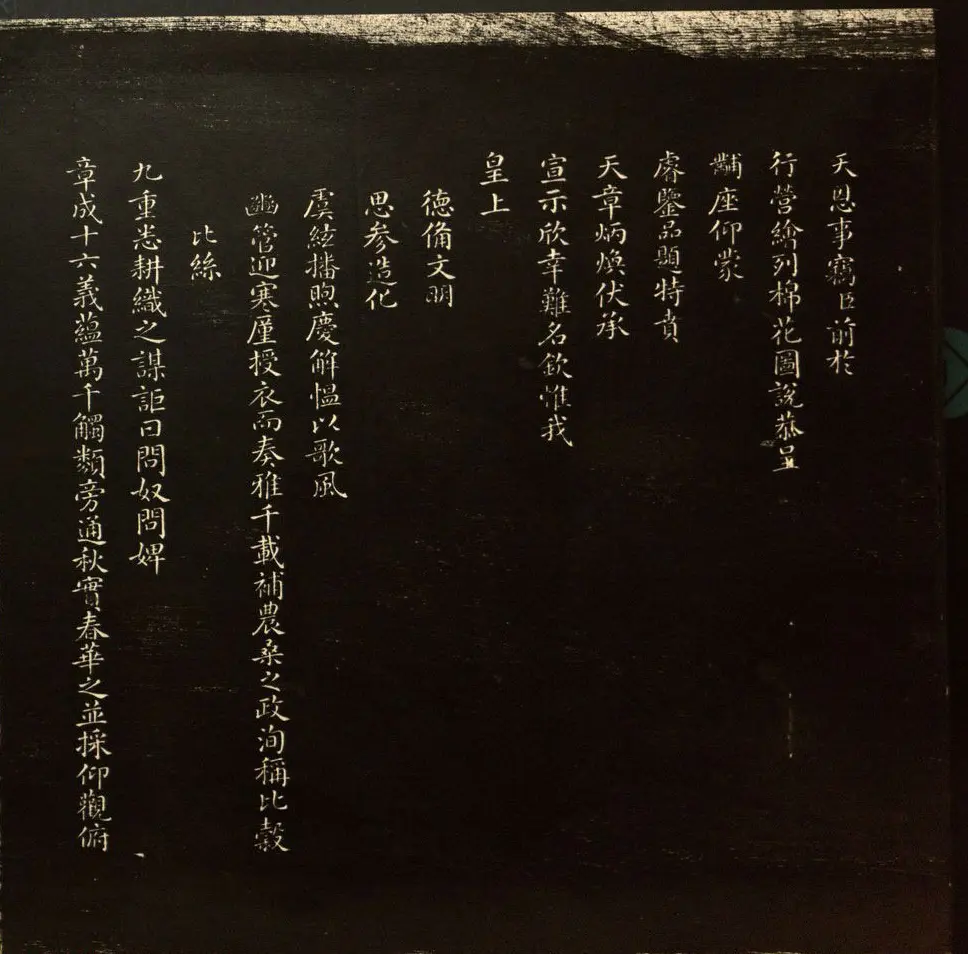 天恩事竊臣前於
行營繪列棉花圖說恭呈
黼座仰蒙
睿鑒品題特賁
天章炳煥伏承
宣示欣幸難名欽惟我
皇上
德備文明
思参造化
虞絃播煦慶解慍以歌風
豳管迎寒廑授衣而奏雅千載補農桑之政洵稱比縠
比絲
九重恙耕織之謀詎曰問奴問婢
章成十六義蘊萬千觸類旁通秋實春華之並採仰觀俯